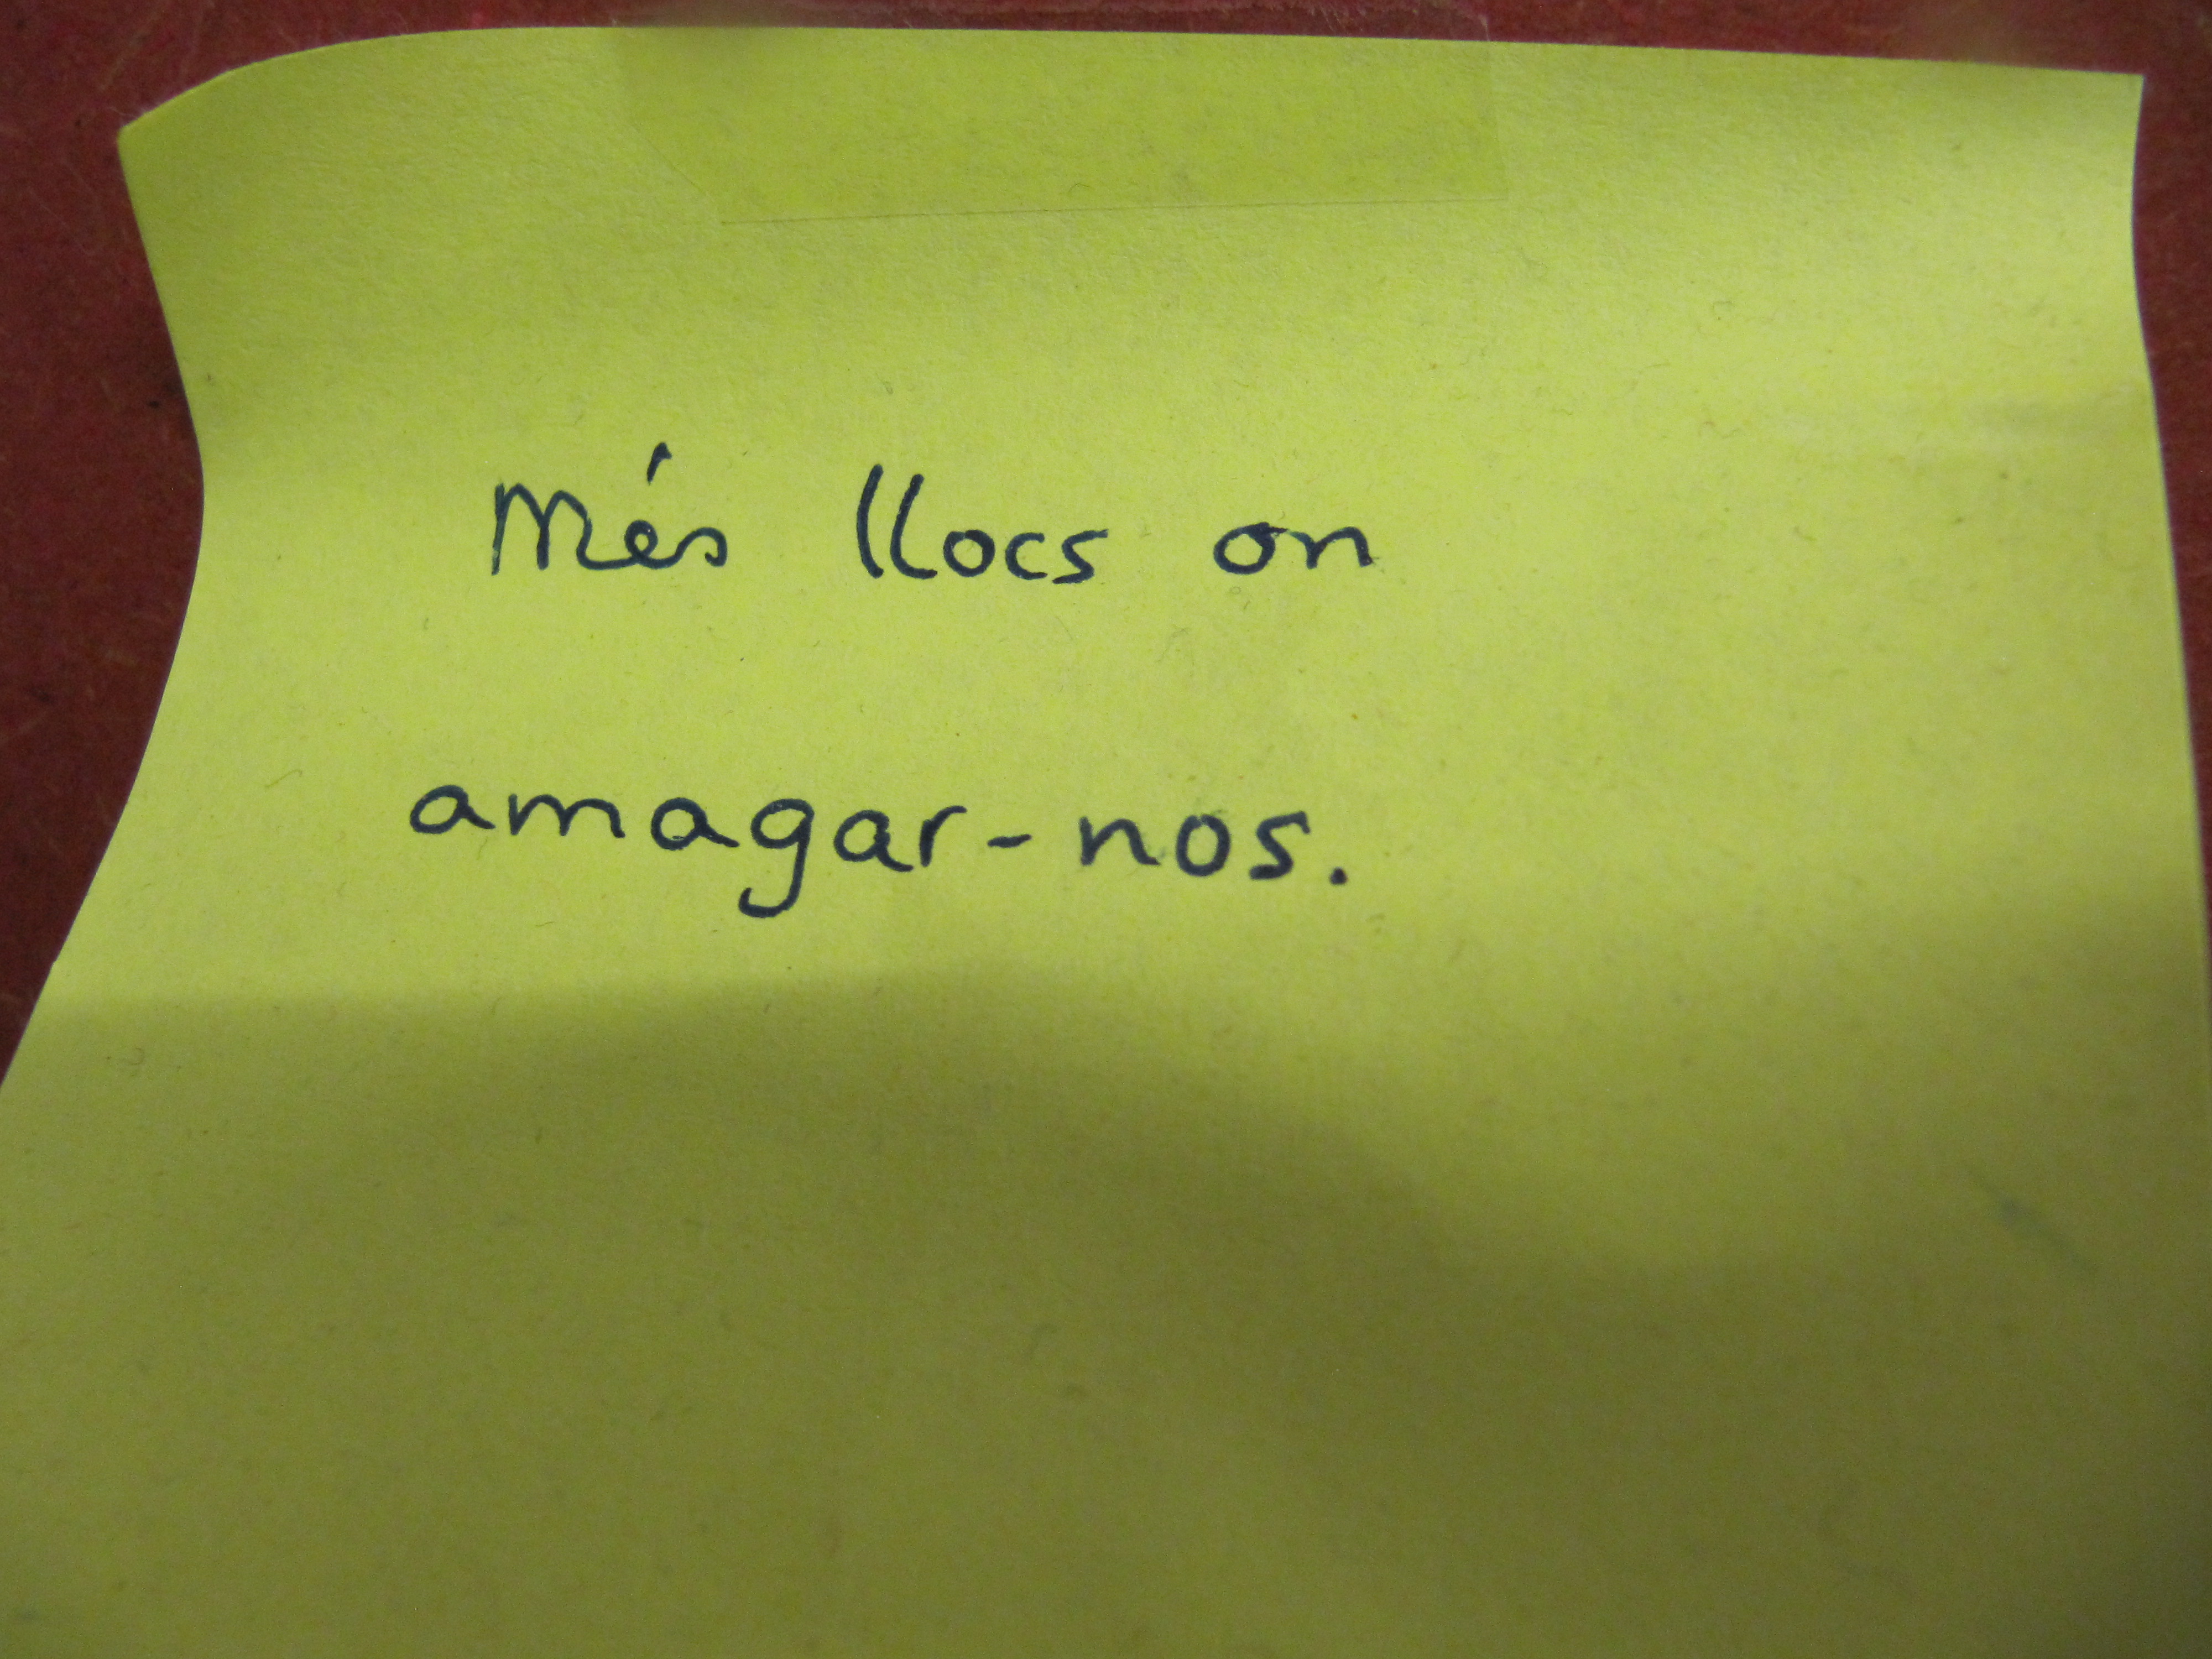 Més llocs on
amagar-nos.